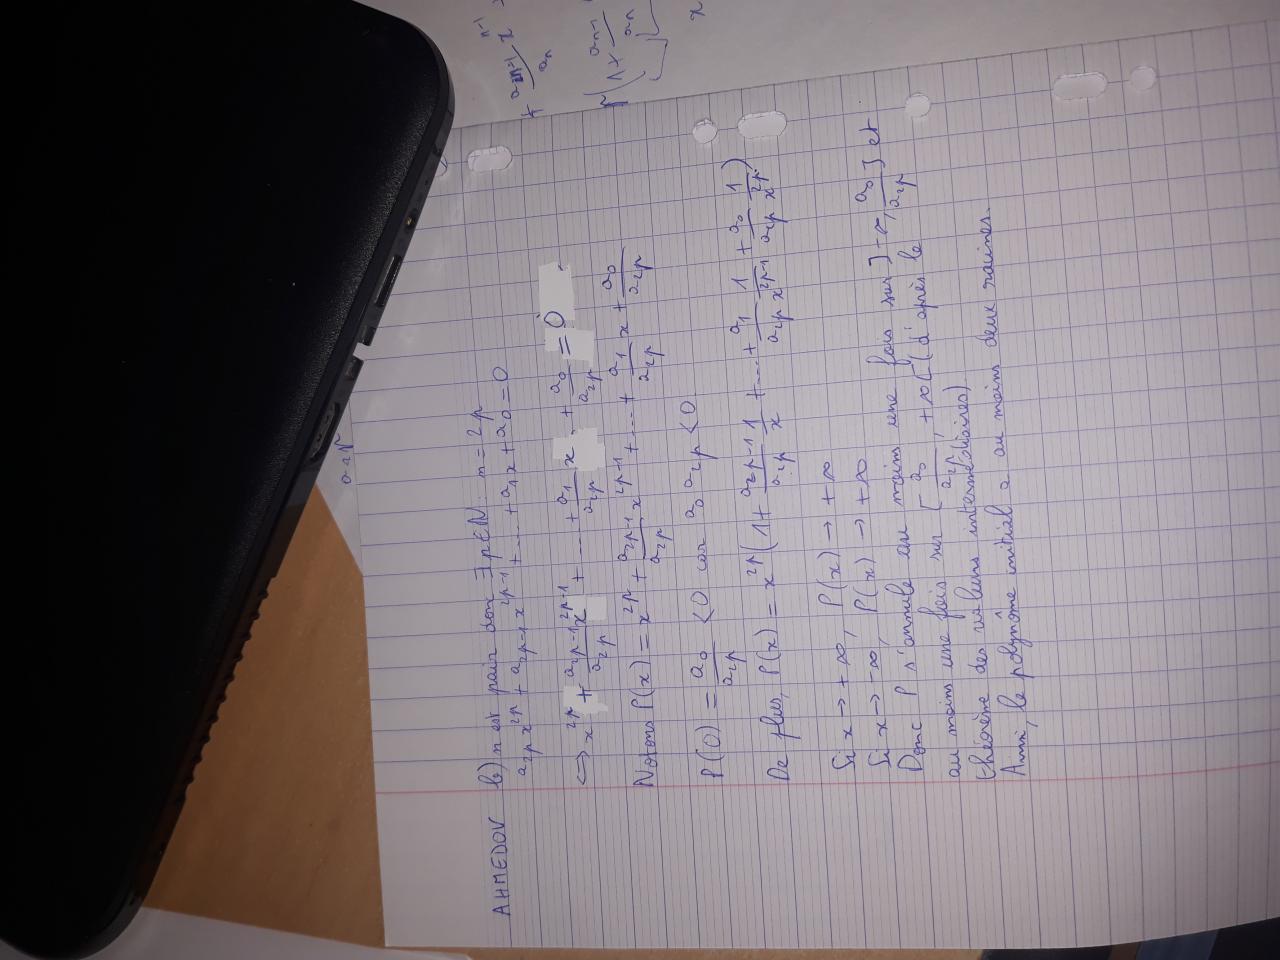 AHMEDOV
b) n est pair donc ∃p∈ℕ : n = 2p
a_{2p} x^{2p} + a_{2p-1} x^{2p-1} + .... + a_1 x + a_0 = 0
⟺ x^{2p} + \frac{a_{2p-1}}{a_{2p}} x^{2p-1} + .... + \frac{a_1}{a_{2p}} x + \frac{a_0}{a_{2p}} = 0
Notons P(x) = x^{2p} + \frac{a_{2p-1}}{a_{2p}} x^{2p-1} + .... + \frac{a_1}{a_{2p}} x + \frac{a_0}{a_{2p}}
P(0) = \frac{a_0}{a_{2p}} < 0 car a_0 a_{2p} < 0
De plus, P(x) = x^{2p} (1 + \frac{a_{2p-1}}{a_{2p}} \frac{1}{x} + .... + \frac{a_1}{a_{2p}} \frac{1}{x^{2p-1}} + \frac{a_0}{a_{2p}} \frac{1}{x^{2p}})
Si x → +∞, P(x) → +∞
Si x → -∞, P(x) → +∞
Donc P s'annule au moins une fois sur ]-∞, \frac{a_0}{a_{2p}}] et
au moins une fois sur [\frac{a_0}{a_{2p}}, +∞[ (d'après le
théorème des valeurs intermédiaires)
Ainsi, le polynôme initial a au moins deux racines.